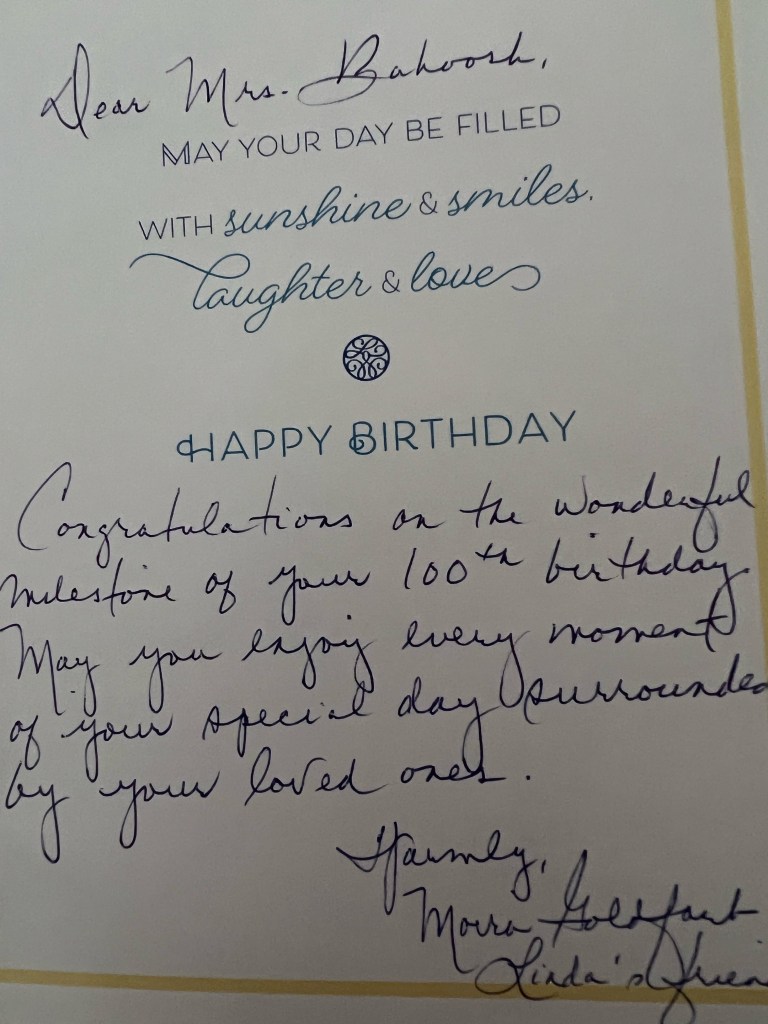 Dear Mrs. Bahoosh,
MAY YOUR DAY BE FILLED
WITH sunshine & smiles.
laughter & love
HAPPY BIRTHDAY
Congratulations on the wonderful
milestone of your 100th birthday.
May you enjoy every moment
of your special day surrounded
by your loved ones.
Warmly,
Moira
Linda's frien